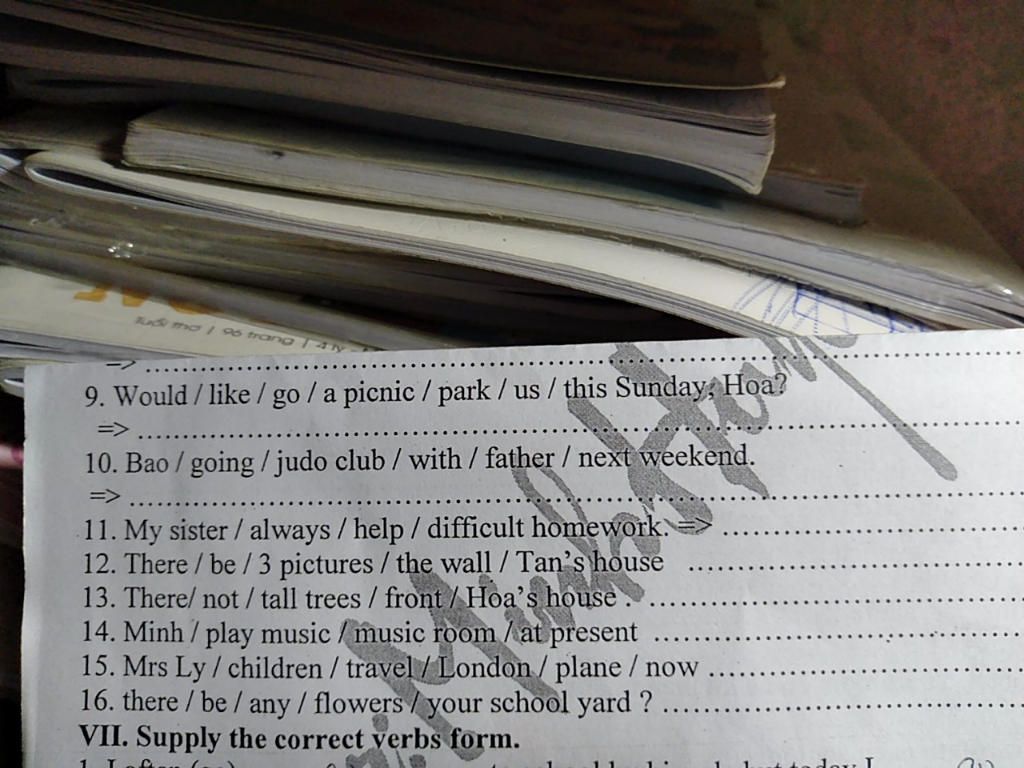 Tuổi thơ | 96 trang | 4 ly
=> ....................
9. Would / like / go / a picnic / park / us / this Sunday, Hoa?
=> ....................
10. Bao / going / judo club / with / father / next weekend.
=> ....................
11. My sister / always / help / difficult homework. => ....................
12. There / be / 3 pictures / the wall / Tan's house ....................
13. There/ not / tall trees / front / Hoa's house . ....................
14. Minh / play music / music room / at present ....................
15. Mrs Ly / children / travel / London / plane / now ....................
16. there / be / any / flowers / your school yard ? ....................
VII. Supply the correct verbs form.